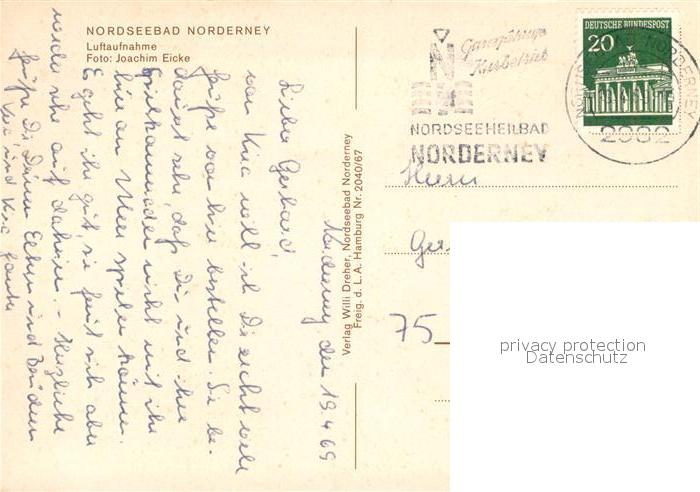 NORDSEEBAD NORDERNEY
Luftaufnahme
Foto: Joachim Eicke
Norderney den 19.4.69
Lieber Gerhard,
von Kira soll ich Dir recht viele
Grüße von hier bestellen. Sie be-
dauert sehr, daß Du und ihre
Spielkameraden nicht mit ihr
hier am Meer spielen können.
Es geht ihr gut, sie freut sich aber
wieder sehr auf daheim. - Herzliche
Grüße Dir, Deinen Eltern und Brüdern
und
Verlag Willi Dreher, Nordseebad Norderney
Freig. d. L. A. Hamburg Nr. 2040/67
Ganzjähriger
Kurbetrieb
N
NORDSEEHEILBAD
NORDERNEY
DEUTSCHE BUNDESPOST
20
NORDERNEY
2982
Herrn
Ger
75
privacy protection
Datenschutz